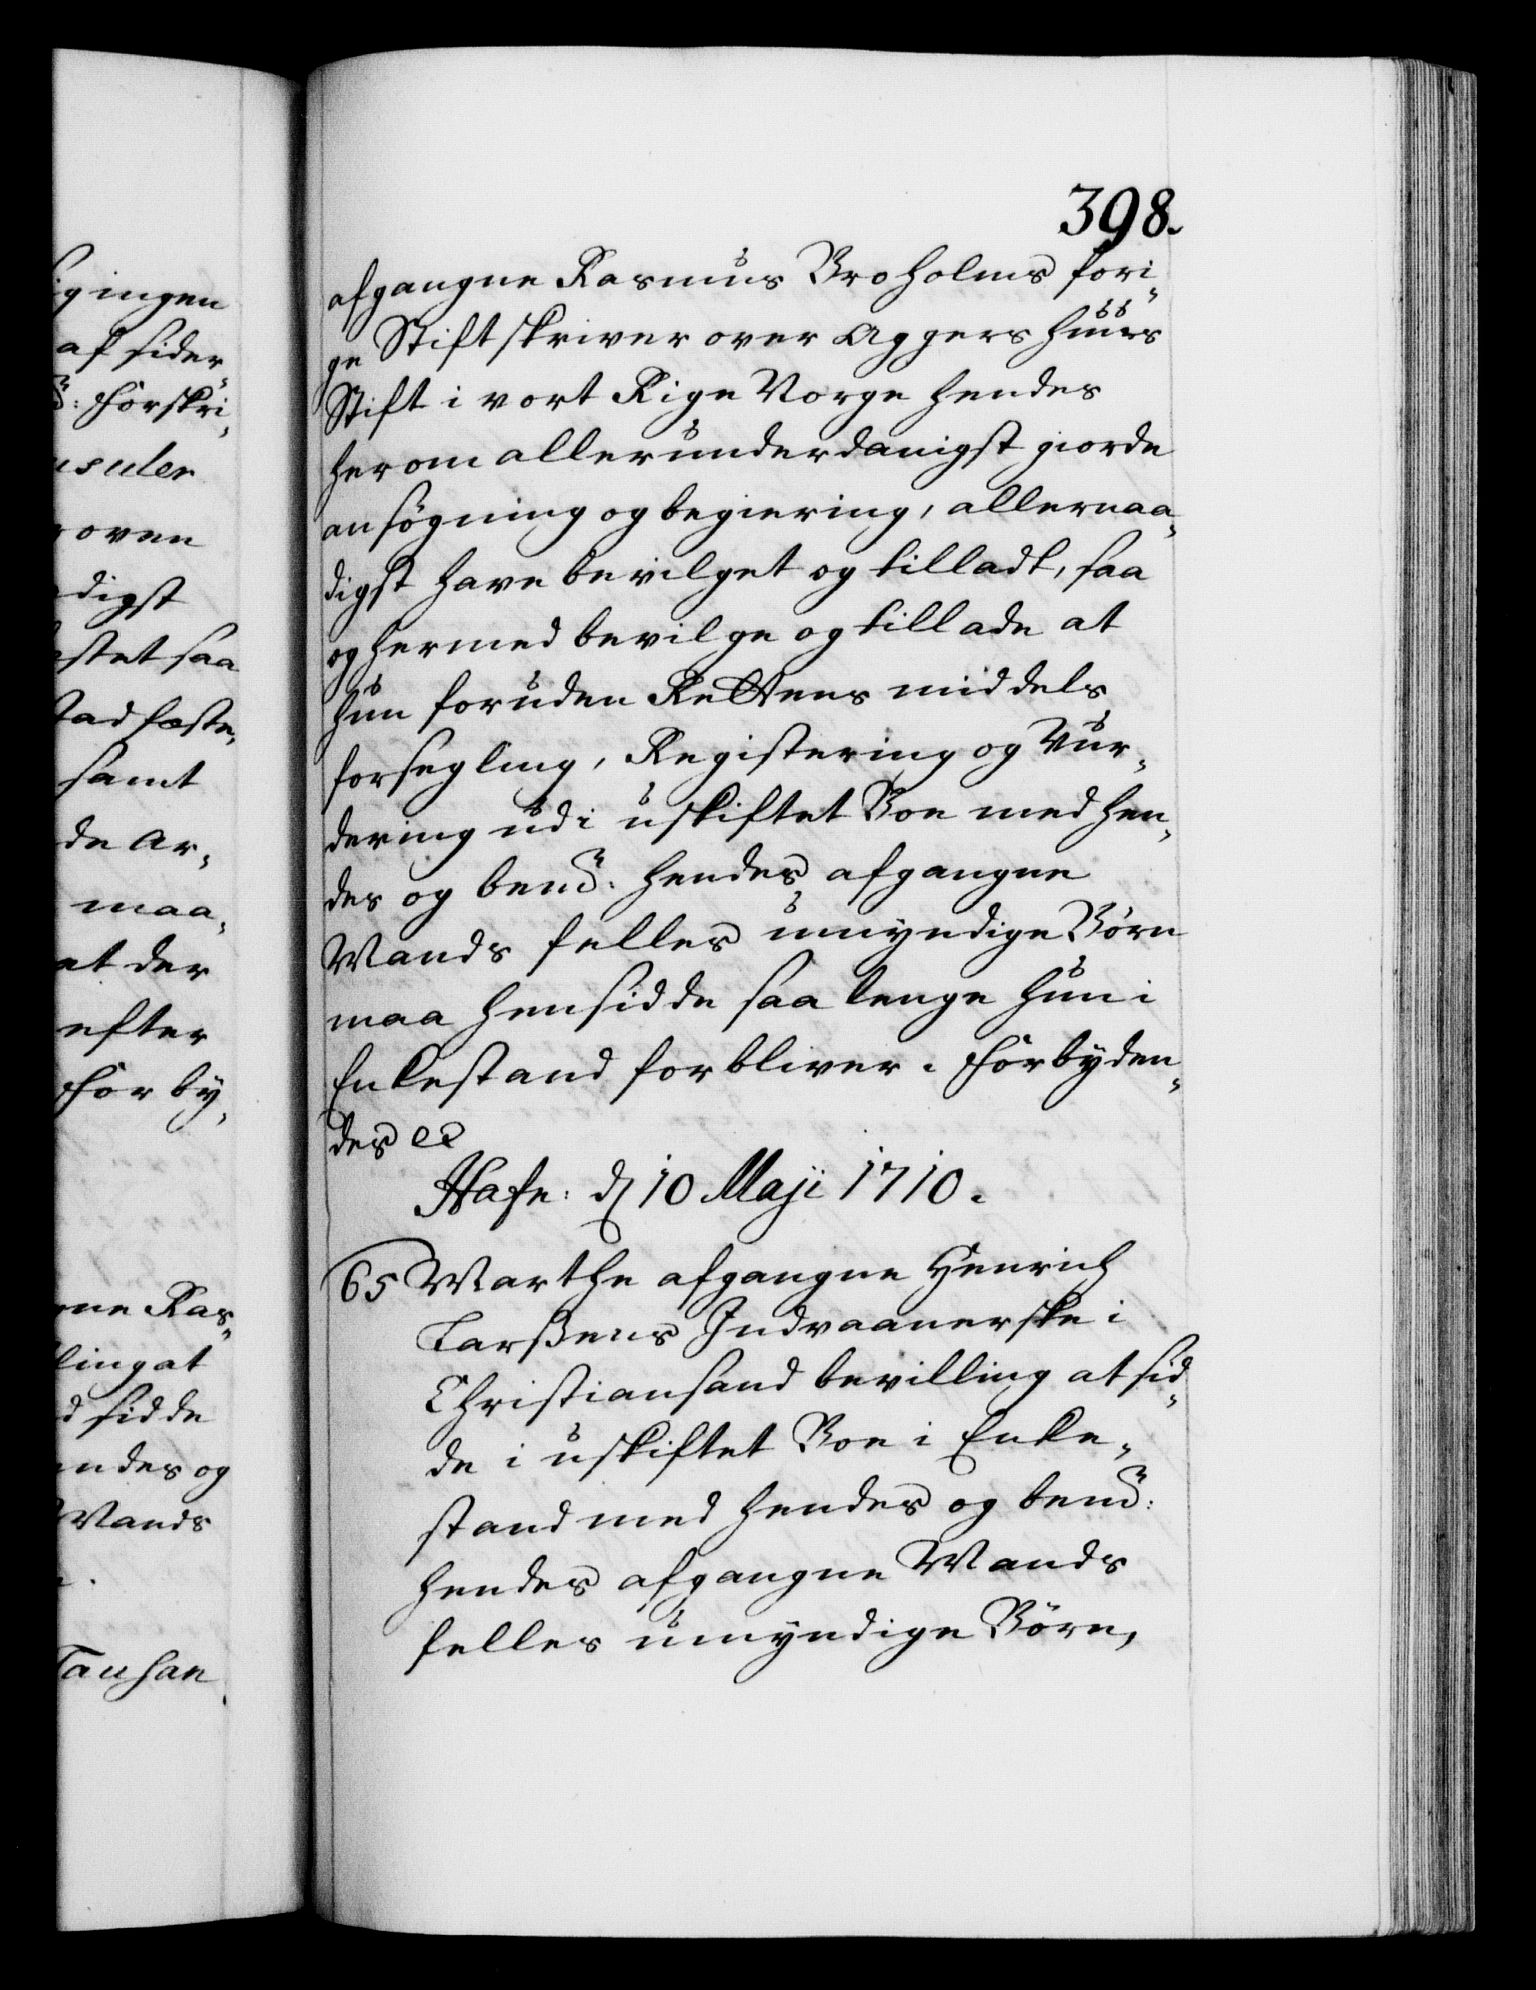 398.
afgangne Rasmus Broholms fori-
ge Stiftskriver over Aggershuus
Stift i vort Rige Norge hendes
herom allerunderdanigst giorde
ansøgning og begiering, allernaa-
digst have bevilget og tilladt, saa
og hermed bevilge og tillade at
hun foruden Rettens middels
forsegling, Registering og Vur-
dering udi uskiftet Boe med hen-
des og bemt: hendes afgangne
Mands felles umyndige Børn
maa hensidde saa lenge hun i
Enkestand forbliver. Forbyden-
des etc
Hafn: d 10 Maji 1710.
65 Marthe afgangne Henrich
Larssens Indvaanerske i
Christiansand bevilling at sid-
de i uskiftet Boe i Enke-
stand med hendes og bemt:
hendes afgangne Mands
felles umyndige Børn,
gingen
af sider
Forskri-
suler
oven
digst
stet saa
stadfæste-
samt
de Ar-
maa-
at der
efter
Forby-
Ras-
ling at
sidde
endes og
Mands
Tausan